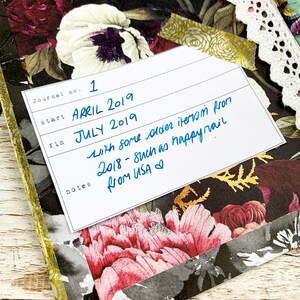 Journal no. 1
start APRIL 2019
fin JULY 2019
with some older items from
2018 - such as happymail
notes from USA ♡